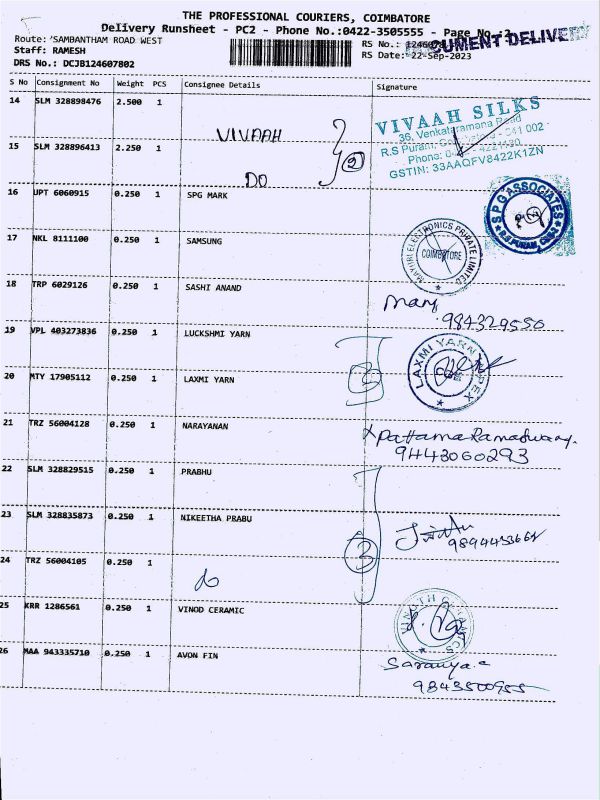 THE PROFESSIONAL COURIERS, COIMBATORE
Delivery Runsheet - PC2 - Phone No.:0422-3505555 - Page No.
Route: SAMBANTHAM ROAD WEST
RS No.:
DOCUMENT DELIVERY
Staff: RAMESH
RS Date: 22-Sep-2023
DRS No.: DCJB124607802
S No Consignment No Weight PCS Consignee Details Signature
14 SLM 328898476 2.500 1 VIVAAH
VIVAAH SILKS
36, Venkataramana Road
R.S Puram, 641 002
Phone:
GSTIN: 33AAQFV8422K1ZN
15 SLM 328896413 2.250 1 DO
2
16 UPT 6060915 0.250 1 SPG MARK
SPG ASSOCIATES
R.S PURAM, CBE-2
17 NKL 8111100 0.250 1 SAMSUNG
MAYURI ELECTRONICS PRIVATE LIMITED
COIMBATORE
18 TRP 6029126 0.250 1 SASHI ANAND
Mary
984329550
19 VPL 403273836 0.250 1 LUCKSHMI YARN
2
LAXMI YARN
20 MTY 17905112 0.250 1 LAXMI YARN
21 TRZ 56004128 0.250 1 NARAYANAN
Pattama Ramaswamy
9443060293
22 SLM 328829515 0.250 1 PRABHU
23 SLM 328835873 0.250 1 NIKEETHA PRABU
3
24 TRZ 56004105 0.250 1 do
25 KRR 1286561 0.250 1 VINOD CERAMIC
26 MAA 943335710 0.250 1 AVON FIN
Saranya
9843500955